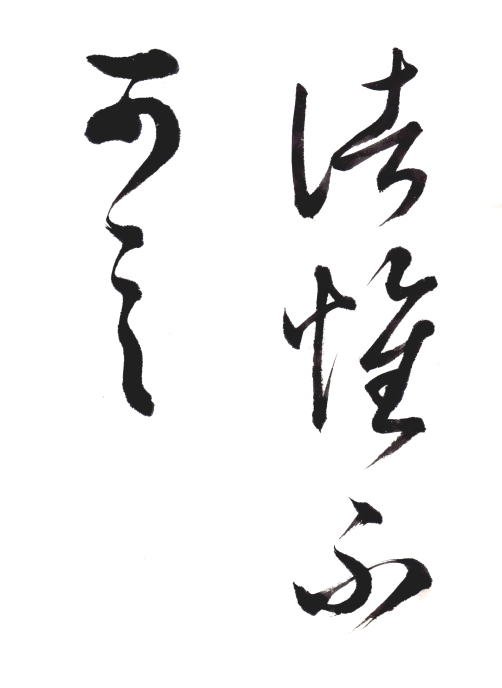 法惟不
可言